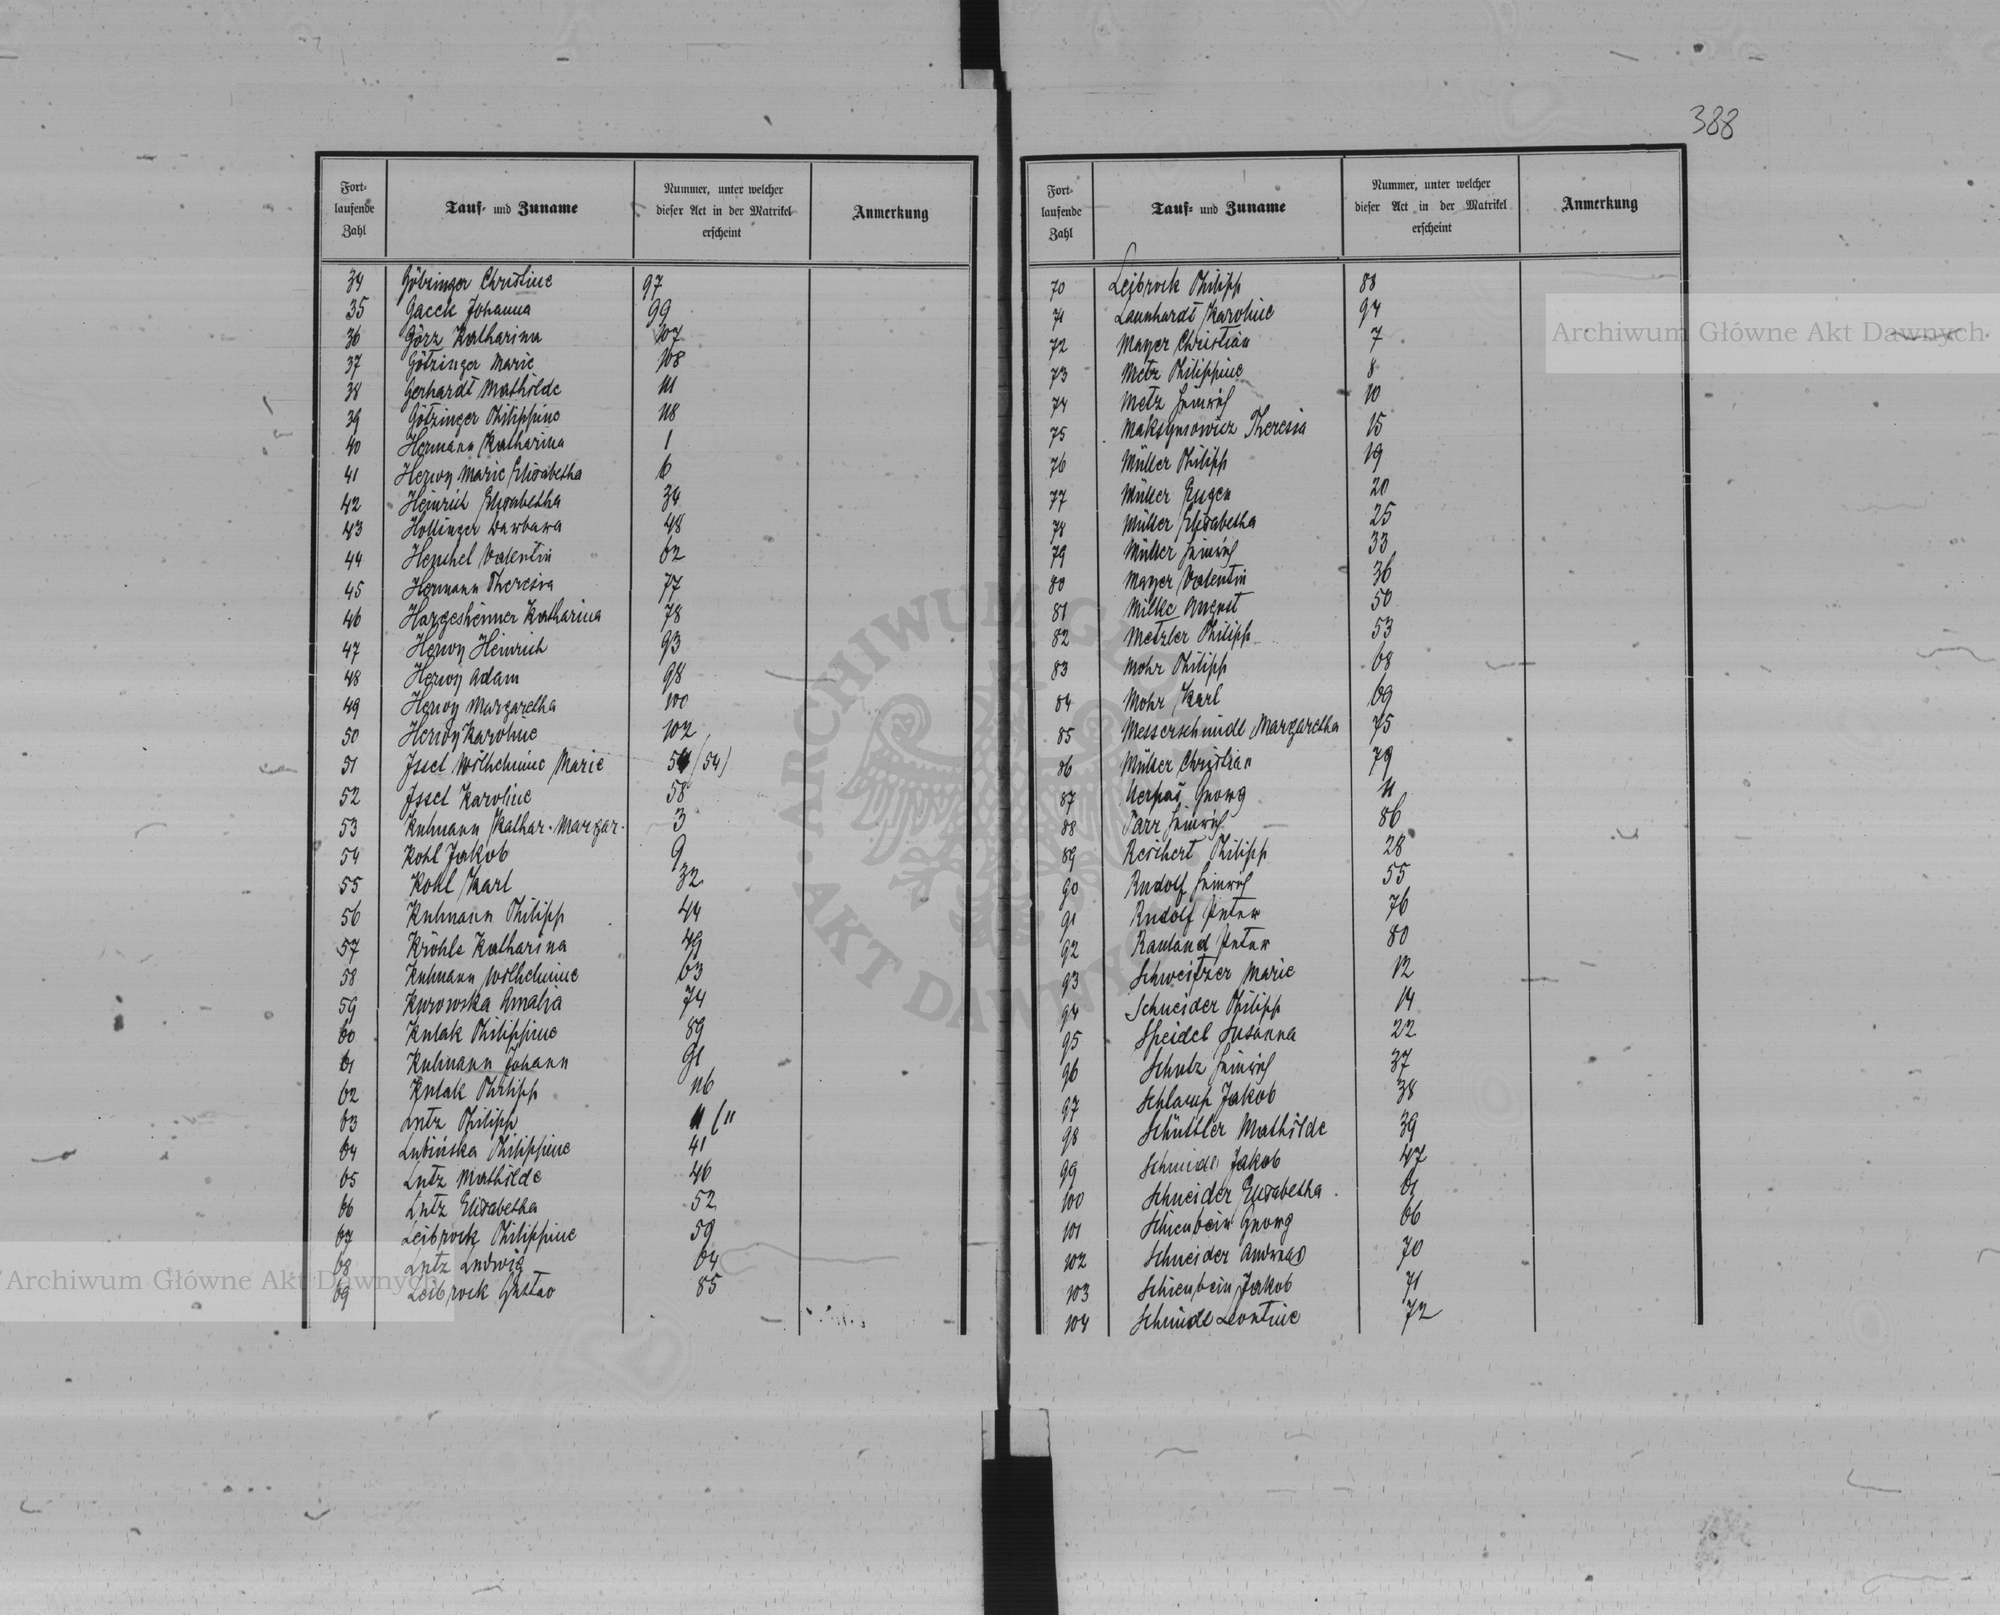 388
Fort-
laufende
Zahl
Tauf- und Zuname
Nummer, unter welcher
dieser Act in der Matrikel
erscheint
Anmerkung
34 Göbringer Christine 97
35 Jacek Johanna 99
36 Görz Katharina 107
37 Götzinger Marie 108
38 Gerhardt Mathilde 111
39 Götzinger Philippine 118
40 Hermann Katharina 1
41 Hervy Marie Elisabetha 6
42 Heinrich Elisabetha 34
43 Hollinger Barbara 48
44 Henchel Valentin 62
45 Hermann Theresia 77
46 Hargesheimer Katharina 78
47 Hervy Heinrich 93
48 Hervy Adam 98
49 Hervy Margaretha 100
50 Hervy Karoline 102
51 Issel Wilhelmine Marie 54 (54)
52 Issel Karoline 58
53 Kuhmann Kathar. Margar. 3
54 Kohl Jakob 9
55 Kohl Karl 32
56 Kuhmann Philipp 44
57 Kröhle Katharina 49
58 Kuhmann Wilhelmine 63
59 Kurowska Amalia 74
60 Kulak Philippine 89
61 Kuhmann Johann 91
62 Kulak Philipp 116
63 Lutz Philipp
64 Lubińska Philippine 41
65 Lutz Mathilde 46
66 Lutz Elisabetha 52
67 Leibrock Philippine 59
68 Lutz Ludwig 64
69 Leibrock Gustav 85
Fort-
laufende
Zahl
Tauf- und Zuname
Nummer, unter welcher
dieser Act in der Matrikel
erscheint
Anmerkung
70 Leibrock Philipp 88
71 Launhardt Karoline 94
72 Mayer Christian 7
73 Metz Philippine 8
74 Metz Heinrich 10
75 Maksymowicz Theresia 15
76 Müller Philipp 19
77 Müller Eugen 20
78 Müller Elisabetha 25
79 Müller Heinrich 33
80 Mayer Valentin 36
81 Milke August 50
82 Metzler Philipp 53
83 Mohr Philipp 68
84 Mohr Karl 69
85 Messerschmidt Margaretha 75
86 Müller Christian 79
87 Georg 11
88 Parr Heinrich 86
89 Reichert Philipp 28
90 Rudolf Heinrich 55
91 Rudolf Peter 76
92 Rauland Peter 80
93 Schweitzer Marie 12
94 Schneider Philipp 14
95 Speidel Susanna 22
96 Schulz Heinrich 37
97 Schlamp Jakob 38
98 Schüttler Mathilde 39
99 Schmidt Jakob 47
100 Schneider Elisabetha 61
101 Schienbein Georg 66
102 Schneider Andreas 70
103 Schienbein Jakob 71
104 Schmidt Leontine 72
Archiwum Główne Akt Dawnych
Archiwum Główne Akt Dawnych